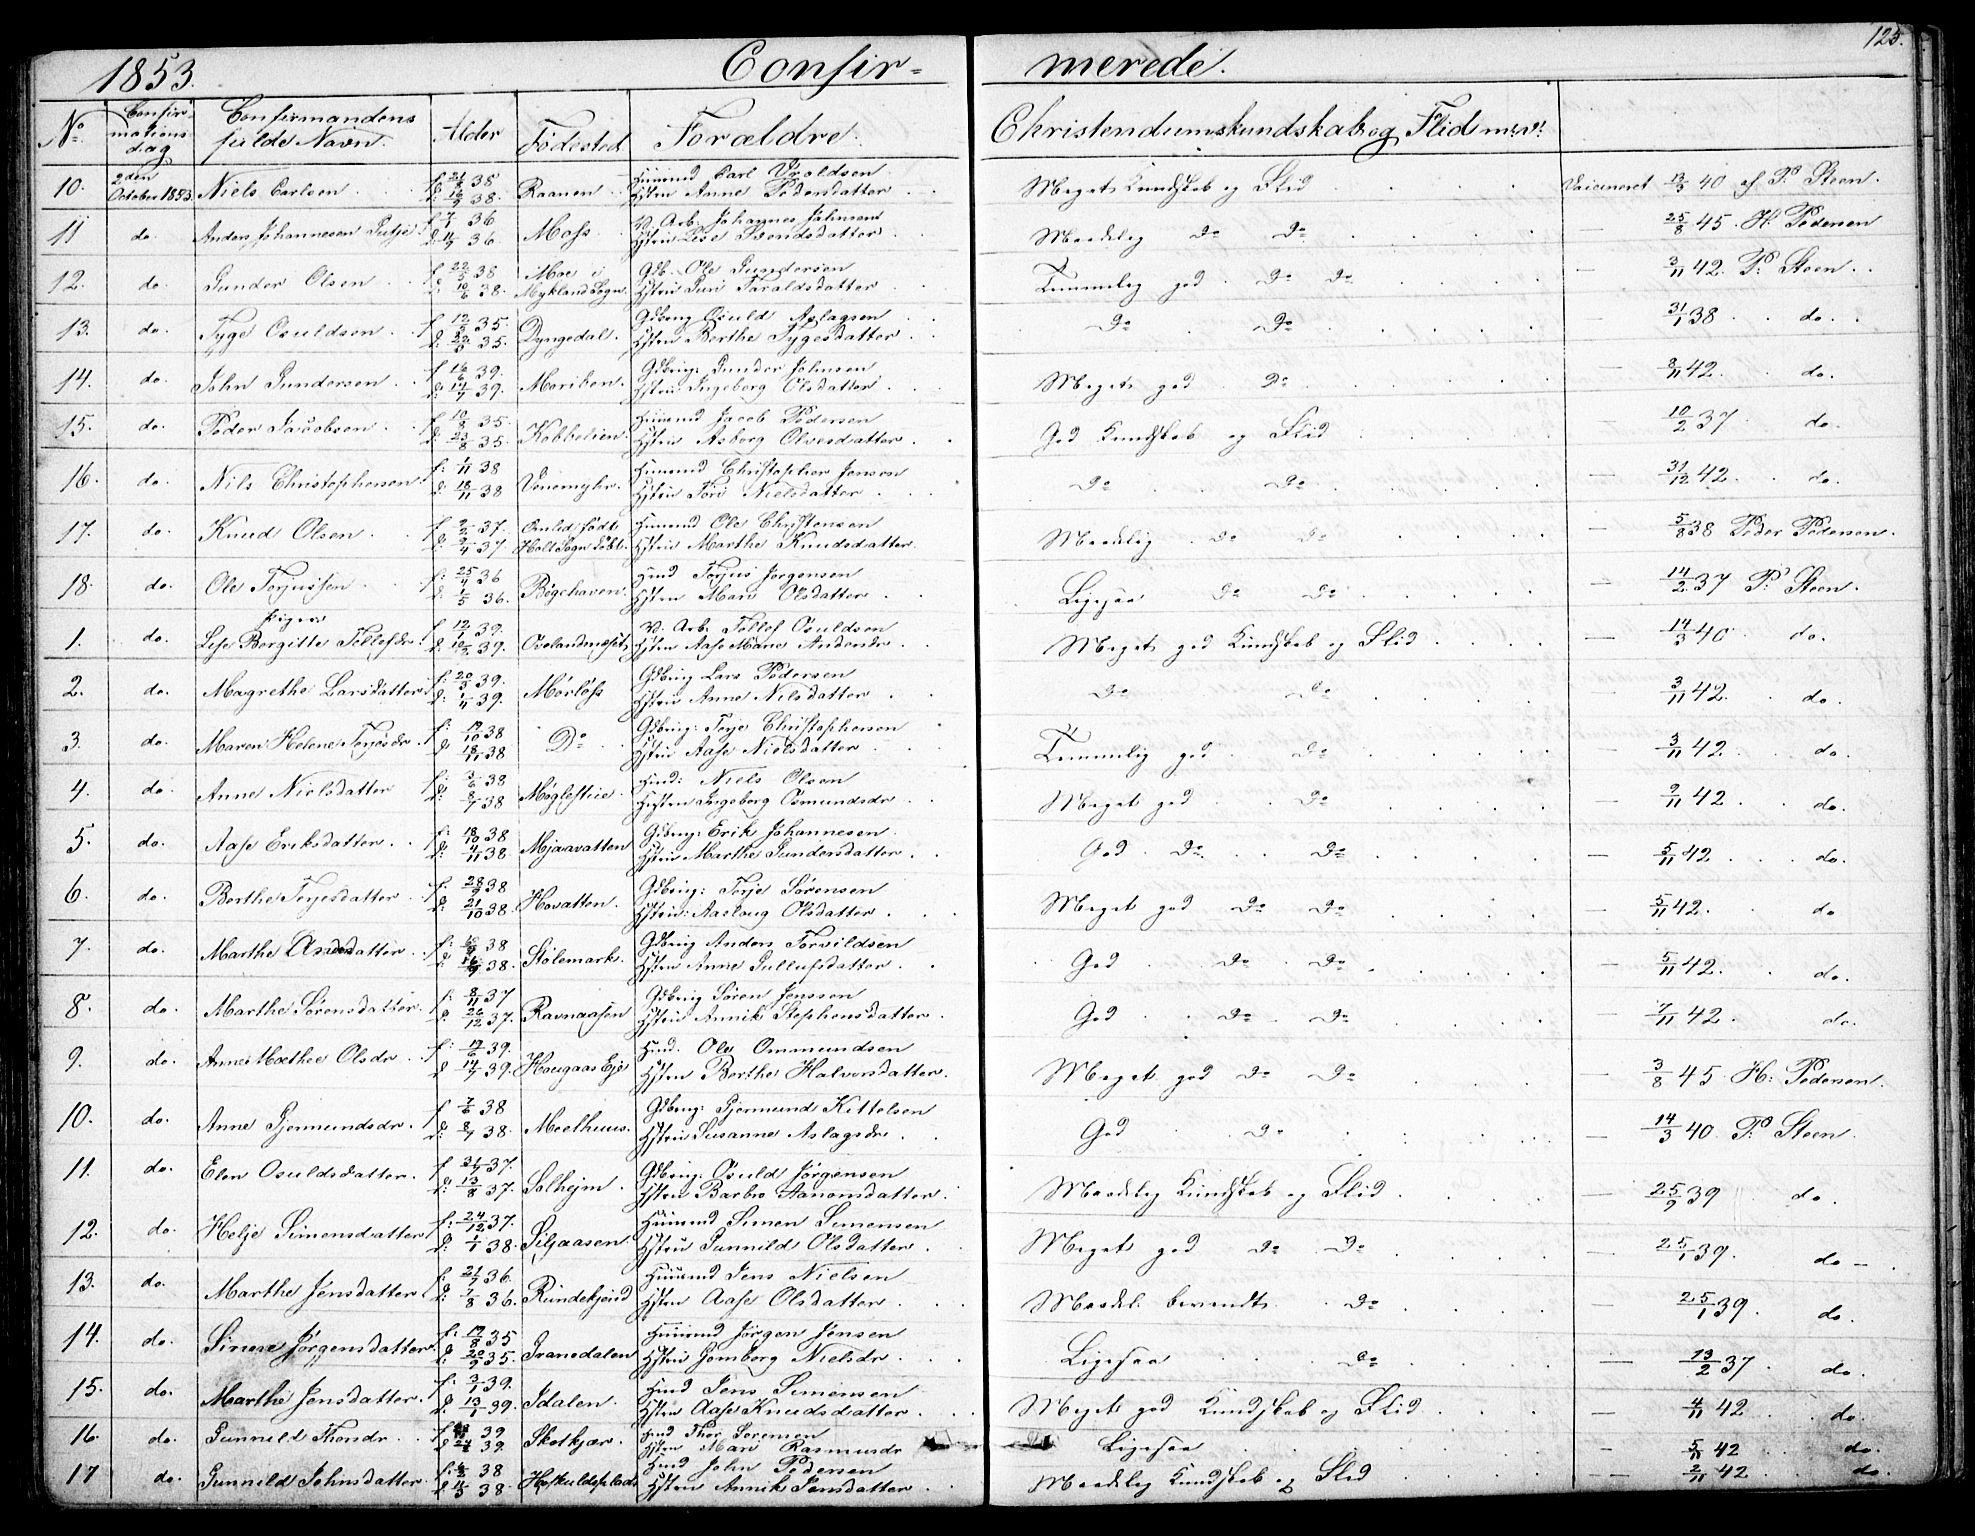 125.
1853.
Confir=
merede.
No.
Confirmationsdag
Confirmandens fulde Navn.
Alder
Fødested
Forældre.
Christendumskundskab og Flid m: v:
10. 2den October 1853. Niels Carlsen f: 21/8 38 Raanen Huusmd Carl
d: 38. Hstru Anne Pedersdatter
Meget Kundskab og Flid Vaccineret 13/3 40 af P. Steen.
11 do. Anders Johannesen f 7/1 36 Moss V. Arb. Johannes Johnsen
d 11/7 36 Hstru Lise Svendsdatter
Maadelig Do Do — 25/8 45. H. Pedersen
12. do. Gunder Olsen f 22/5 38 Moe i Gdb. Ole Gundersen
d: 10/6 38. Mykland Sogn. Hstru Guri Taraldsdatter
Temmelig god Do Do — 3/11 42. P. Steen.
13. do. Tyge Osuldsen f 12/2 35. Dyngedal. Gdbrug Osuld Aslagsen
d: 22/3 35. Hstru Berthe Tygesdatter
Do Do 31/1 38 do.
14. do. John Gundersen f 16/6 39. Moriben. Gdbrug: Gunder Johnsen
d 14/7 39. Hstru Ingeborg Olsdatter
Meget god Do — 8/11 42. do.
15. do. Peder Jacobsen f 10/8 35. Kobbelien. Huusmd Jacob Pedersen
d: 23/8 35. Hstru Asborg Olvesdatter
God Kundskab og Flid — 10/2 37 do.
16. do. Nils Christophersen f: 1/11 38 Venemyhr. Huusmd Christopher Jensen
d: 18/11 38 Hstru Tori Nielsdatter
Do Do — 31/12 42. do.
17. do. Knud Olsen f 2/2 37. Omlid født Huusmd Ole Christensen
d: 2/4 37. Holt Sogn døbt. Hstru Marthe Knudsdatter
Maadelig Do Do — 5/8 38 Peder Pedersen.
18. do. Ole Terjussen f: 25/4 36 Bøgehaven. Hmd Terjus Jorgensen
d: 1/5 36. Hstru Mari Olsdatter
Ligesaa Do Do — 14/2 37 P. Steen.
Piger
1. do. Lise Bergitte Tellefsdr. f 12/1 39. V. Arb. Tellef Osuldsen
d: 10/3 39. Hstru Aase Marie Andersdr.
Meget god Kundskab og Flid — 14/3 40. do.
2. do. Magrethe Larsdatter f: 20/3 39. Mørløss Gdbrug Lars Pedersen
d: 1/4 39. Hstru Anne Nilsdatter
Do Do — 3/11 42. do.
3. do. Maren Helene Terjesdr. f: 17/10 38 Do Gdbrug: Terje Christophersen
d: 18/11 38 Hstru Aase Nielsdatter
Temmelig god Do — 3/11 42. do.
4. do. Anne Nielsdatter f: 3/6 38 Møglestue. Hmd: Niels Olsen
d: 8/7 38 Hustru Ingeborg Osmundsdr.
Meget god Do — 2/11 42 do.
5. do. Aase Eriksdatter. f: 18/10 38 Mjaavatten Gdbrug: Erik Johannesen.
d: 4/11 38. Hstru Marthe Gundersdatter
God Do Do — 5/11 42 do.
6. do. Berthe Terjesdatter f: 28/9 38 Hovatten. Gdbrug: Terje Sørensen
d: 21/10 38. Hstru: Aaslaug Olsdatter
Meget god Do Do — 5/11 42. do
7. do. Marthe Andersdatter f: 38 Stølemark. Gdbrug Anders Torvildsen
d 38. Hstru Anne Gullufsdatter
God Do Do — 5/11 42. do.
8. do. Marthe Sørensdatter. f: 8/11 37 Ravnaasen Gdbrug Søren Jenssen
d. 26/12 37. Hstru Annik Stephensdatter
God Do Do — 7/11 42 do.
9. do. Anne Mathee Olsdr. f: 17/6 39. Haugaas Eje Hmd. Ole Ommundsen
d 14/7 39. Hstru Berthe Halvorsdatter.
Meget god Do Do — 3/8 45 H: Pedersen.
10. do. Anne Gjermundsdr. f 7/6 38 Moelhuus. Gdbrug: Gjermund Kittelsen
d: 8/7 38. Hstru Susanne Aslagsdr.
God Do — 14/3 40. P. Steen.
11. do. Elen Osuldsdatter. f 31/7 37. Solhejm Gdbrug: Osuld Jørgensen
d: 13/8 37. Hstru Barbro Aanonsdatter.
Maadelig Kundskab og Flid — 25/9 39 do.
12. do. Helje Simonsdatter f: 24/12 37. Siljaasen. Huusmd Simen Simensen
d: 1/1 38. Hstru Gunnild Olsdatter.
Meget god Do Do — 25/1 39. do —
13. do. Marthe Jensdatter f: 21/7 36. Rundekjend Huusmd Jens Nielsen
d: 7/8 36. Hstru Aase Olsdatter
Maadel. bevandt. Do — 25/1 39. do.
14. do. Sirene Jørgensdatter f: 17/8 35 Granedalen Huusmd Jørgen Jensen
d 20/9 35. Hstru Gomborg Nielsdr.
Ligesaa Do — 13/2 37. do.
15. do. Marthe Jensdatter. f: 3/1 39. Idalen. Hmd Jens Simensen
d: 13/1 39. Hstru Aase Knudsdatter
Meget god Kundskab og Flid — 4/11 42 do.
16. do. Gunnild Thorsdr. f 39 Skotkjær. Hmd Thor Sorensen
d 39. Hstru Mari Rasmusdr
Ligesaa — 5/11 42 do.
17 do. Gunnild Johnsdatter f: 38 Heskuldsplads Hmd John Pedersen
d 38. Hstru Annik Jensdatter
Maadelig Kundskab og Flid — 2/11 42 do.